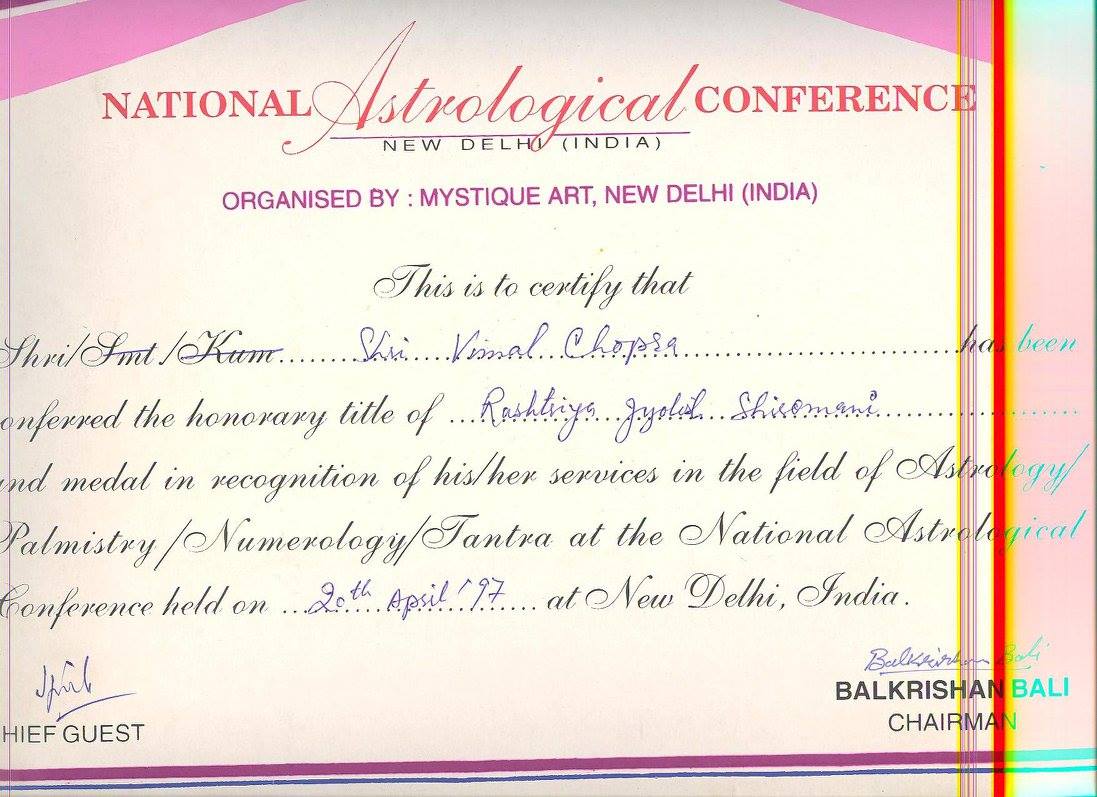 NATIONAL Astrological CONFERENCE
NEW DELHI (INDIA)
ORGANISED BY : MYSTIQUE ART, NEW DELHI (INDIA)
This is to certify that
Shri/Smt./Kum. Shri Vimal Chopra has been
onferred the honorary title of Rashtriya Jyotish Shiromani
and medal in recognition of his/her services in the field of Astrology/
Palmistry/Numerology/Tantra at the National Astrological
Conference held on 20th April '97 at New Delhi, India.
Balkrishan Bali
BALKRISHAN BALI
HIEF GUEST
CHAIRMAN